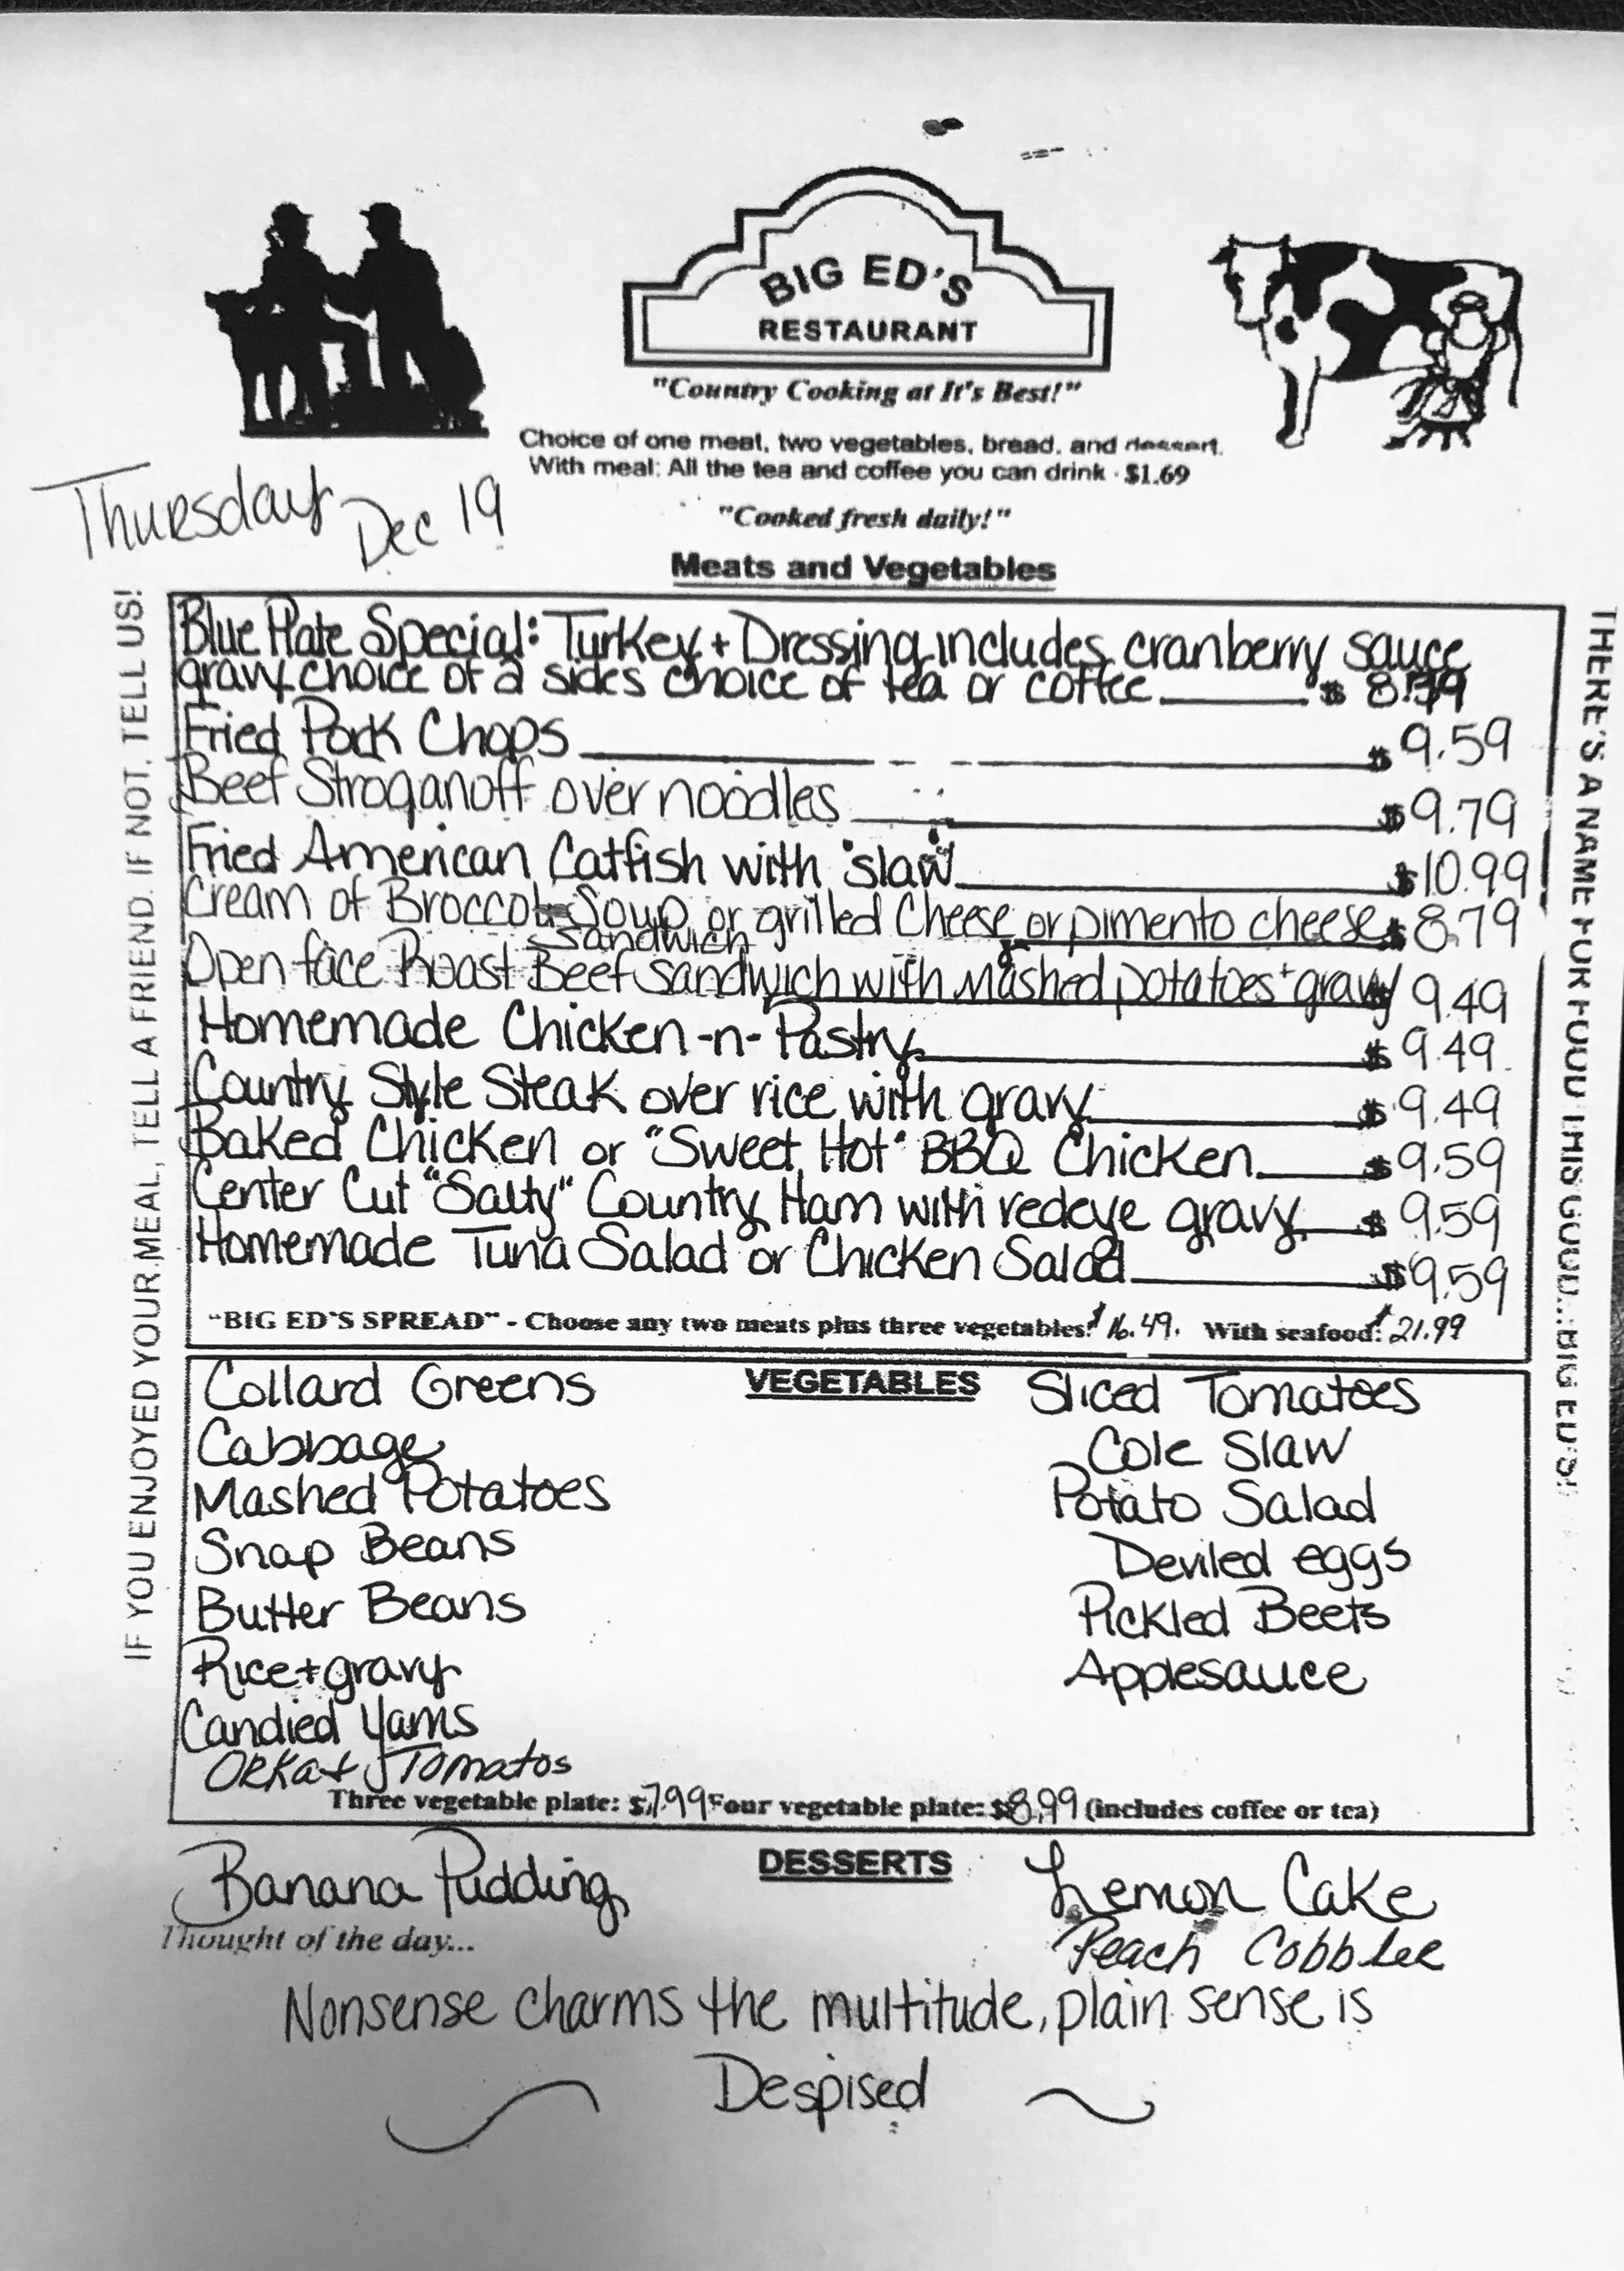 BIG ED'S
RESTAURANT
"Country Cooking at It's Best!"
Choice of one meat, two vegetables, bread, and dessert.
With meal: All the tea and coffee you can drink · $1.69
"Cooked fresh daily!"
Thursday Dec 19
Meats and Vegetables
IF YOU ENJOYED YOUR MEAL, TELL A FRIEND. IF NOT, TELL US!
Blue Plate Special: Turkey + Dressing includes cranberry sauce
gravy choice of 2 sides choice of tea or coffee $
Fried Pork Chops $ 9.59
Beef Stroganoff over noodles $ 9.79
Fried American Catfish with "slaw" $ 10.99
Cream of Broccoli Soup or grilled Cheese or pimento cheese $ 8.79
Sandwich
Open face Roast Beef Sandwich with Mashed potatoes + gravy $ 9.49
Homemade Chicken -n- Pastry $ 9.49
Country Style Steak over rice with gravy $ 9.49
Baked Chicken or "Sweet Hot" BBQ Chicken $ 9.59
Center Cut "Salty" Country Ham with redeye gravy $ 9.59
Homemade Tuna Salad or Chicken Salad $ 9.59
"BIG ED'S SPREAD" - Choose any two meats plus three vegetables: $16.49. With seafood: $21.99
THERE'S A NAME FOR FOOD THIS GOOD...BIG ED'S!
VEGETABLES
Collard Greens
Cabbage
Mashed Potatoes
Snap Beans
Butter Beans
Rice + gravy
Candied Yams
Orka + Tomatos
Sliced Tomatoes
Cole Slaw
Potato Salad
Deviled eggs
Pickled Beets
Applesauce
Three vegetable plate: $7.99 Four vegetable plate: $8.99 (includes coffee or tea)
DESSERTS
Banana Pudding
Lemon Cake
Peach Cobbler
Thought of the day...
Nonsense charms the multitude, plain sense is
Despised